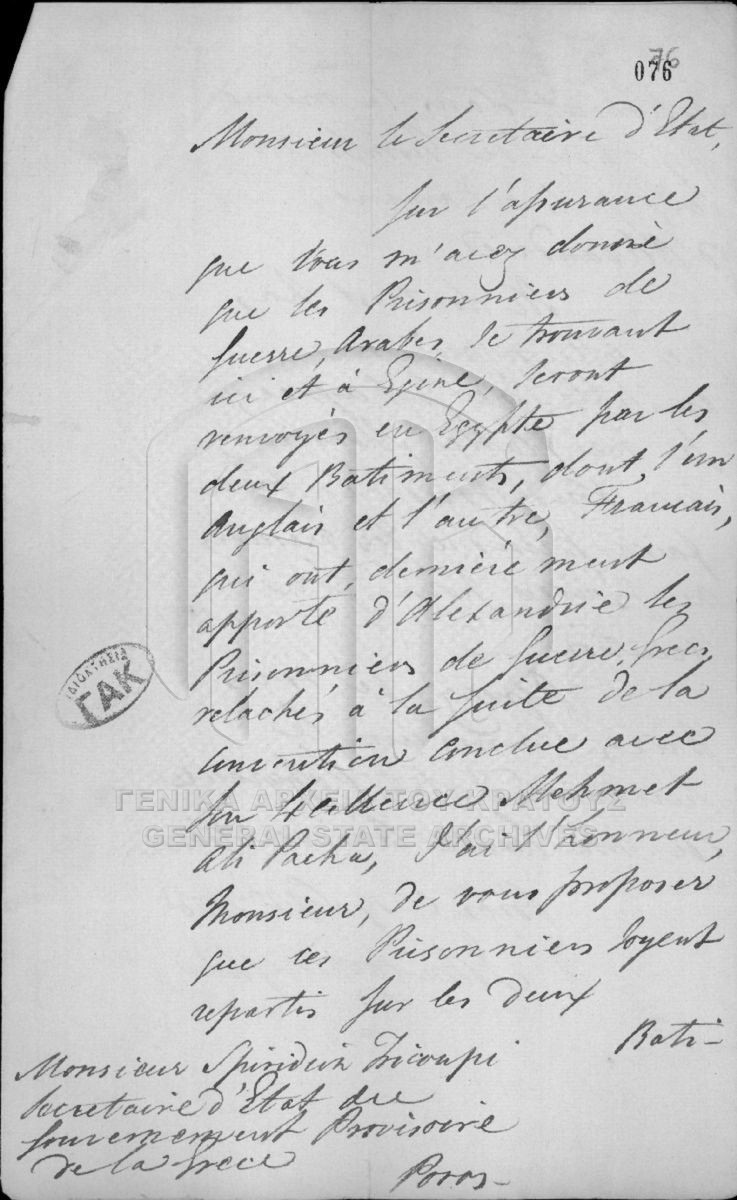 76
076
Monsieur le Secretaire d'Etat,
Sur l'assurance
que Vous m'avez donné
que les Prisonniers de
guerre, Arabes, se trouvant
ici et à Egine, seront
renvoyés en Egypte par les
deux Batiments, dont l'un
Anglais et l'autre, Francais,
qui ont, derniére ment
apporté d'Alexandrie les
Prisonniers de Guerre, Grecs,
relachés à la suite de la
convention conclue avec
Son Excellence Mehmet
Ali Pacha, J'ai l'honneur,
Monsieur, de vous proposer
que ces Prisonniers soyent
repartis sur les deux
Bati-
Monsieur Spiridion Tricoupi
Secretaire d'Etat du
Gouvernement Provisoire
de la Grece
Poros-
ΙΔΙΟΚΤΗΣΙΑ
ΓΑΚ
ΓΕΝΙΚΑ ΑΡΧΕΙΑ ΤΟΥ ΚΡΑΤΟΥΣ
GENERAL STATE ARCHIVES